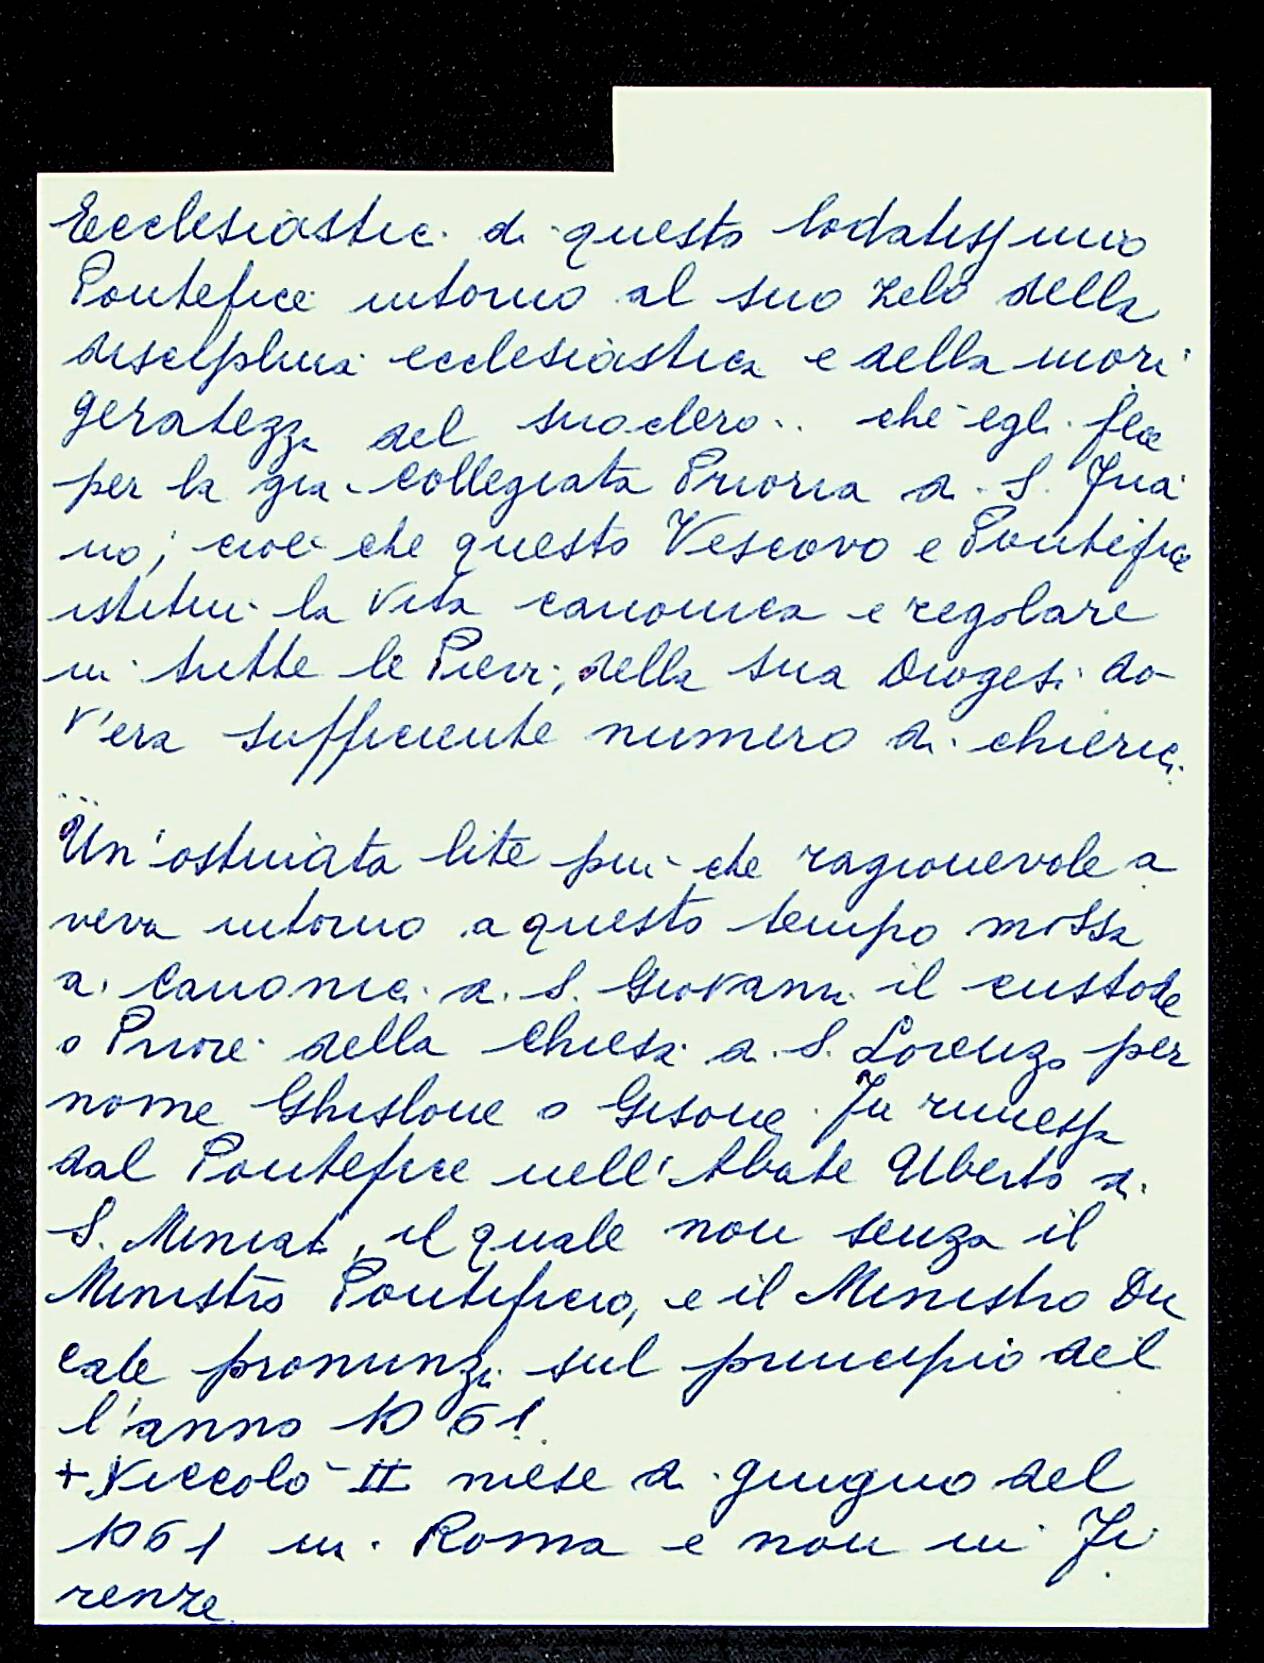 Ecclesiastici di questo lodatissimo
Pontefice intorno al suo zelo della
disciplina ecclesiastica e della mori
geratezza del suo clero.. che egli fece
per la già Collegiata Prioria di S.
no; cioè che questo Vescovo e Pontefice
istituì la vita canonica e regolare
in tutte le Pievi, della sua Diogesi do-
v'era sufficiente numero di chierici.
...
Un'ostinata lite più che ragionevole a
veva intorno a questo tempo mossa
ai Canonici di S. Giovanni il custode
o Priore della Chiesa di S. Lorenzo per
nome Ghislone o Gisone. Fu rimessa
dal Pontefice nell'Abate Uberto di
S. Miniat, il quale non senza il
Ministro Pontificio, e il Ministro Du
cale pronunzi sul principio del
l'anno 1061.
+ Niccolò II mese di giugno del
1061 in Roma e non in Fi
renze.